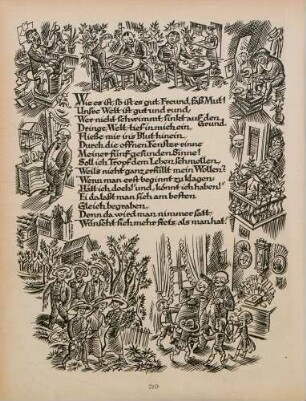 Wie es ist, so ist es gut. Freund, faß Mut!
Unsre Welt ist gut und rund,
Wer nicht schwimmt, sinkt auf den
Grund.
Dringe, Welt, tief in mich ein,
Fließe mir ins Blut hinein
Durch die offnen Fenster einne
Meiner fünf gesunden Sinne!
Soll ich Tropf dem Leben schmollen,
Weils nicht ganz erfüllt mein Wollen?
Wenn man erst beginnt zu klagen:
Hätt ich doch! und, könnt ich haben!
Ei da läßt man sich am besten
Gleich begraben.
Denn da wird man nimmer satt,
Wünscht sich mehr stets, als man hat.